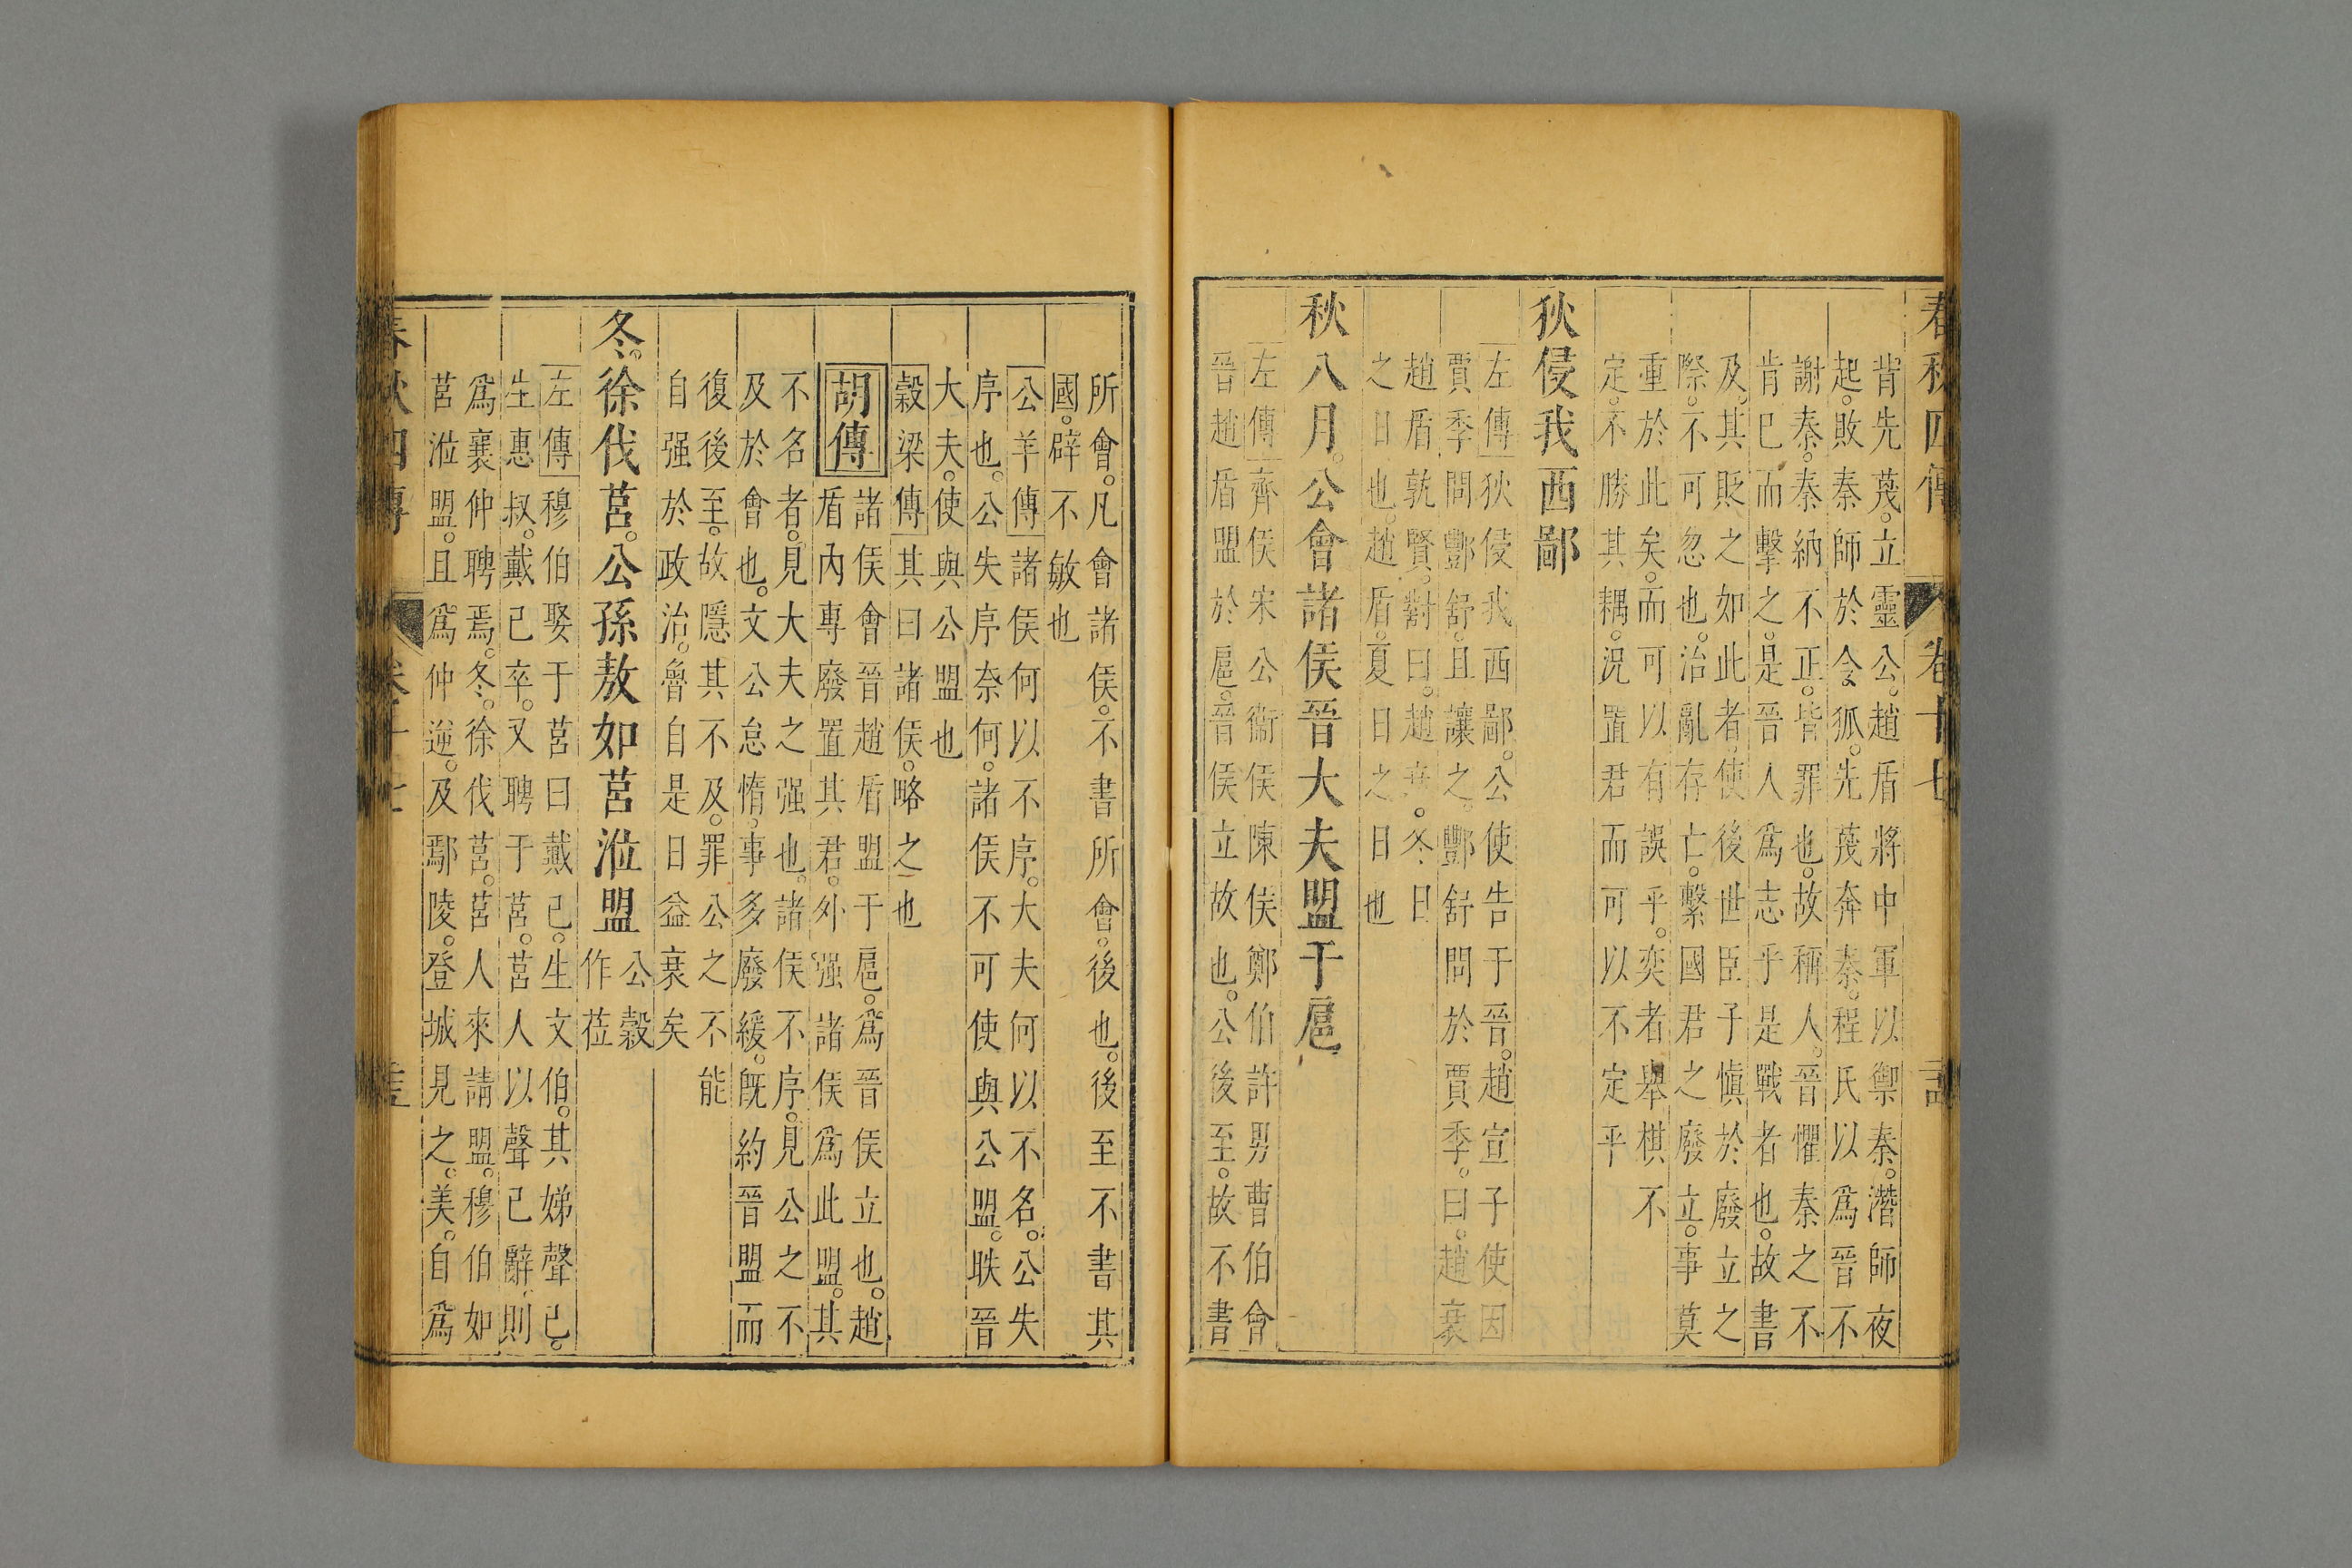 春秋四傳 卷十七
背先蔑。立靈公。趙盾將中軍以禦秦。潛師夜
起。敗秦師於令狐。先蔑奔秦。程氏以爲晉不
謝秦。秦納不正。皆罪也。故稱人。晉懼秦之不
肯已而擊之。是晉人爲志乎是戰者也。故書
及。其貶之如此者。使後世臣子慎於廢立之
際。不可忽也。治亂存亡。繫國君之廢立。事莫
重於此矣。而可以有誤乎。奕者舉棋不
定。不勝其耦。況置君而可以不定乎
狄侵我西鄙
左傳狄侵我西鄙。公使告于晉。趙宣子使因
賈季問酆舒。且讓之。酆舒問於賈季。曰。趙衰
趙盾孰賢。對曰。趙衰。冬日
之日也。趙盾。夏日之日也
秋八月。公會諸侯晉大夫盟于扈
左傳齊侯宋公衞侯陳侯鄭伯許男曹伯會
晉趙盾盟於扈。晉侯立故也。公後至。故不書
所會。凡會諸侯。不書所會。後也。後至不書其
國。辟不敏也
公羊傳諸侯何以不序。大夫何以不名。公失
序也。公失序奈何。諸侯不可使與公盟。眣晉
大夫。使與公盟也
穀梁傳其曰諸侯。略之也
胡傳諸侯會晉趙盾盟于扈。爲晉侯立也。趙
盾內專廢置其君。外强諸侯爲此盟。其
不名者。見大夫之强也。諸侯不序。見公之不
及於會也。文公怠惰。事多廢緩。既約晉盟而
復後至。故隱其不及。罪公之不能
自强於政治。魯自是日益衰矣
冬。徐伐莒。公孫敖如莒涖盟公穀作莅
左傳穆伯娶于莒曰戴已。生文伯。其娣聲已。
生惠叔。戴已卒。又聘于莒。莒人以聲已辭。則
爲襄仲聘焉。冬。徐伐莒。莒人來請盟。穆伯如
莒涖盟。且爲仲逆。及鄢陵。登城見之。美。自爲
春秋四傳 卷十七